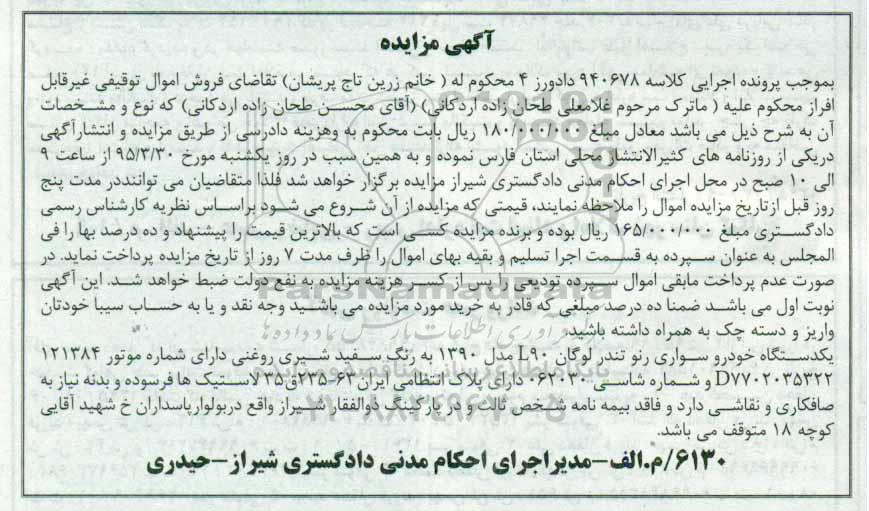 آگهی مزایده
بموجب پرونده اجرایی کلاسه ۹۴۰۶۷۸ دادورز ۴ محکوم له ( خانم زرین تاج پریشان) تقاضای فروش اموال توقیفی غیرقابل
افراز محکوم علیه ( ماترک مرحوم غلامعلی طحان زاده اردکانی) (آقای محسن طحان زاده اردکانی) که نوع و مشخصات
آن به شرح ذیل می باشد معادل مبلغ ۱۸۰/۰۰۰/۰۰۰ ریال بابت محکوم به وهزینه دادرسی از طریق مزایده و انتشارآگهی
دریکی از روزنامه های کثیرالانتشار محلی استان فارس نموده و به همین سبب در روز یکشنبه مورخ ۹۵/۳/۳۰ از ساعت ۹
الی ۱۰ صبح در محل اجرای احکام مدنی دادگستری شیراز مزایده برگزار خواهد شد فلذا متقاضیان می تواننددر مدت پنج
روز قبل ازتاریخ مزایده اموال را ملاحظه نمایند، قیمتی که مزایده از آن شروع می شود براساس نظریه کارشناس رسمی
دادگستری مبلغ ۱۶۵/۰۰۰/۰۰۰ ریال بوده و برنده مزایده کسی است که بالاترین قیمت را پیشنهاد و ده درصد بها را فی
المجلس به عنوان سپرده به قسمت اجرا تسلیم و بقیه بهای اموال را ظرف مدت ۷ روز از تاریخ مزایده پرداخت نماید. در
صورت عدم پرداخت مابقی اموال سپرده تودیعی را پس از کسر هزینه مزایده به نفع دولت ضبط خواهد شد. این آگهی
نوبت اول می باشد ضمنا ده درصد مبلغی که قادر به خرید مورد مزایده می باشید وجه نقد و یا به حساب سیبا خودتان
واریز و دسته چک به همراه داشته باشید.
یکدستگاه خودرو سواری رنو تندر لوگان L۹۰ مدل ۱۳۹۰ به رنگ سفید شیری روغنی دارای شماره موتور ۱۲۱۳۸۴
D۷۷۰۲۰۳۵۳۲۲ و شماره شاسی ۰۶۲۰۳۰ دارای پلاک انتظامی ایران ۶۳-۲۳۵ق۳۵ لاستیک ها فرسوده و بدنه نیاز به
صافکاری و نقاشی دارد و فاقد بیمه نامه شخص ثالث و در پارکینگ ذوالفقار شیراز واقع دربولوارپاسداران خ شهید آقایی
کوچه ۱۸ متوقف می باشد.
۶۱۳۰/م.الف-مدیراجرای احکام مدنی دادگستری شیراز-حیدری